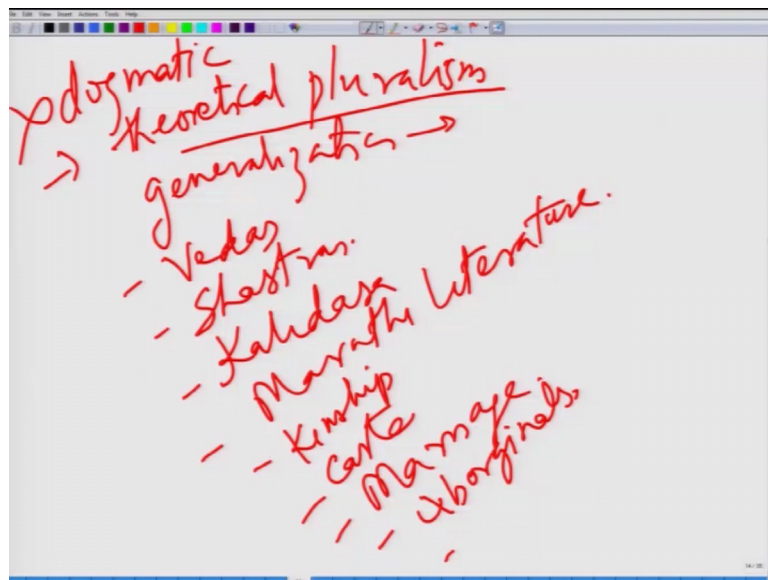 File Edit View Insert Actions Tools Help
x dogmatic
→ theoretical pluralism
generalization →
- Vedas
- Shastras.
- Kalidasa
- Marathi Literature.
- Kinship
- Caste
- Marriage
- Aborginals.
-